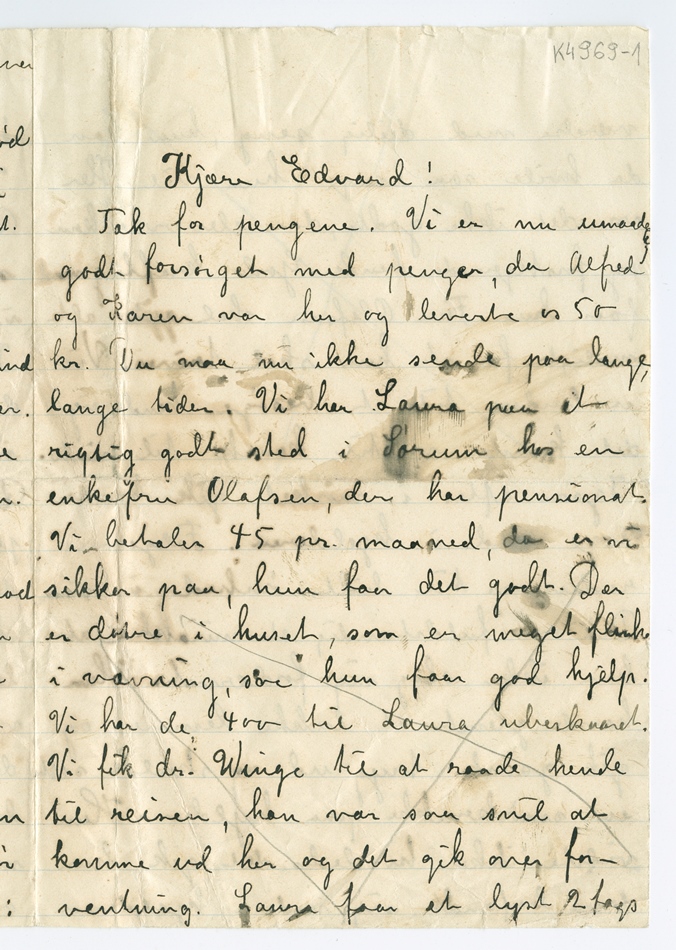 K4969-1
Kjære Edvard!
Tak for pengene. Vi er nu umaadelig
godt forsörget med penger, da Alfred
og Karen var her og leverte os 50
kr. Du maa nu ikke sende paa lange,
lange tider. Vi har Laura paa et
rigtig godt sted i Sörum hos en
enkefru Olafsen, der har pensionat.
Vi betaler 45 pr. maaned, da er vi
sikker paa, hun faar det godt. Der
er dötre i huset, som er meget flinke
i vævning, saa hun faar god hjelp.
Vi har de 400 til Laura ubeskaaret.
Vi fik dr. Winge til at raade hende
til reisen, han var saa snil at
komme ud her og det gik over for-
ventning. Laura faar et lyst 2 fags